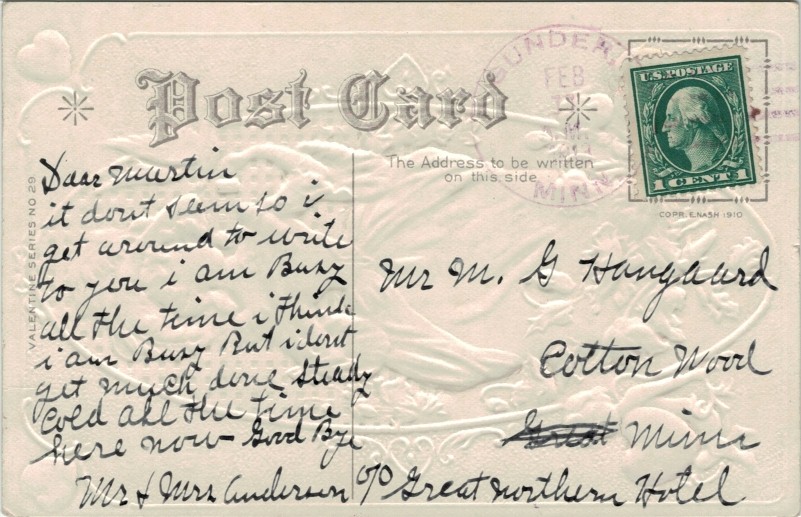 Post Card
The Address to be written
on this side
U.S. POSTAGE
1 CENT 1
COPR. E. NASH 1910
VALENTINE SERIES NO 29
FEB
MINN
Dear Martin
it dont seem so i
get around to write
to you i am Busy
all the time i think
i am Busy But i dont
get much done steady
Cold all the time
here now - Good Bye
Mr & Mrs Anderson
Mr M. G Haugaard
Cotton Wood
Great Minn
c/o Great Northern Hotel